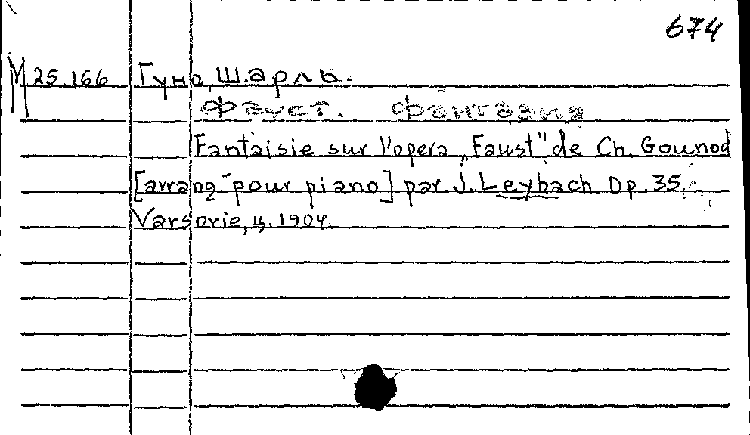 674
М 25.166 Гуно, Шарль.
Фауст. Фантазия
Fantaisie sur l'opera „Faust" de Ch. Gounod
[arrang- pour piano] par J. Leybach Op. 35.
Varsovie, 1904.